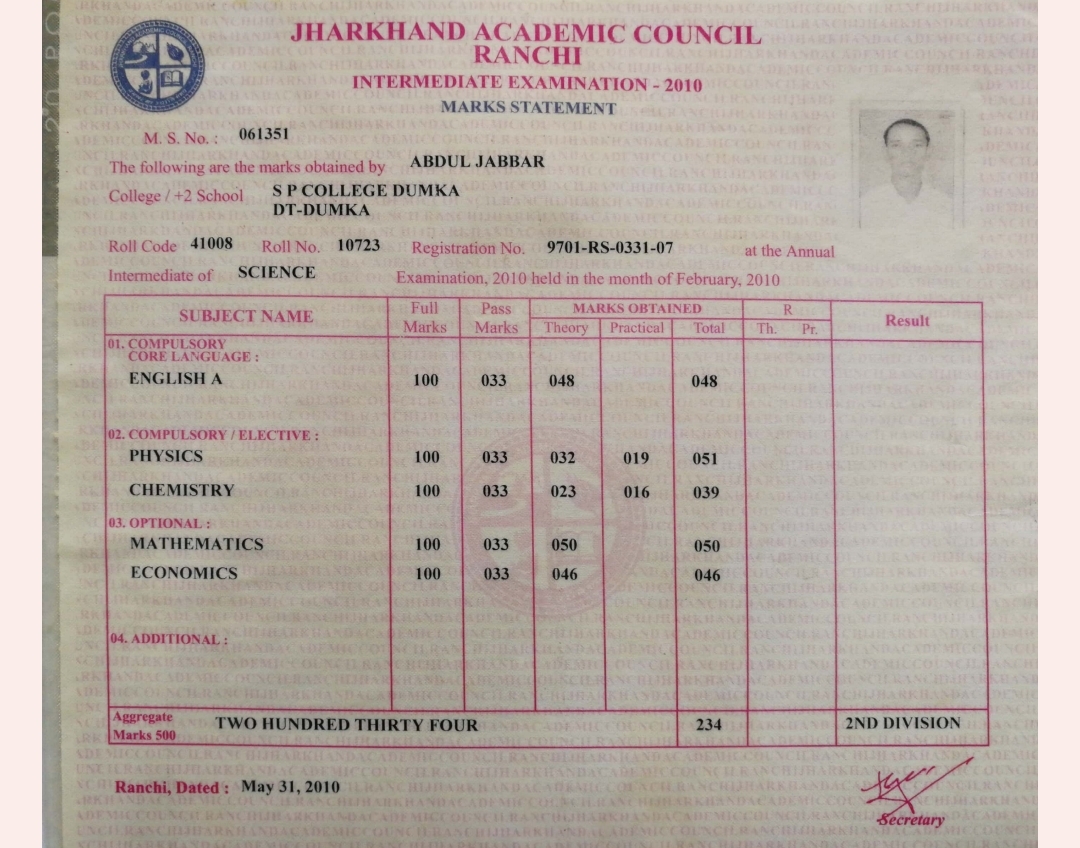 JHARKHAND ACADEMIC COUNCIL
RANCHI
INTERMEDIATE EXAMINATION - 2010
MARKS STATEMENT
M. S. No. : 061351
The following are the marks obtained by ABDUL JABBAR
College / +2 School S P COLLEGE DUMKA
DT-DUMKA
Roll Code 41008 Roll No. 10723 Registration No. 9701-RS-0331-07 at the Annual
Intermediate of SCIENCE Examination, 2010 held in the month of February, 2010
SUBJECT NAME Full Marks Pass Marks MARKS OBTAINED R Result
Theory Practical Total Th. Pr.
01. COMPULSORY
CORE LANGUAGE :
ENGLISH A 100 033 048 048
02. COMPULSORY / ELECTIVE :
PHYSICS 100 033 032 019 051
CHEMISTRY 100 033 023 016 039
03. OPTIONAL :
MATHEMATICS 100 033 050 050
ECONOMICS 100 033 046 046
04. ADDITIONAL :
Aggregate
Marks 500 TWO HUNDRED THIRTY FOUR 234 2ND DIVISION
Ranchi, Dated : May 31, 2010
Secretary